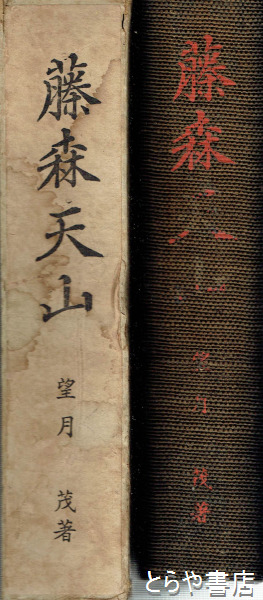 藤森天山
望月 茂著
藤森天山
望月 茂著
とらや書店